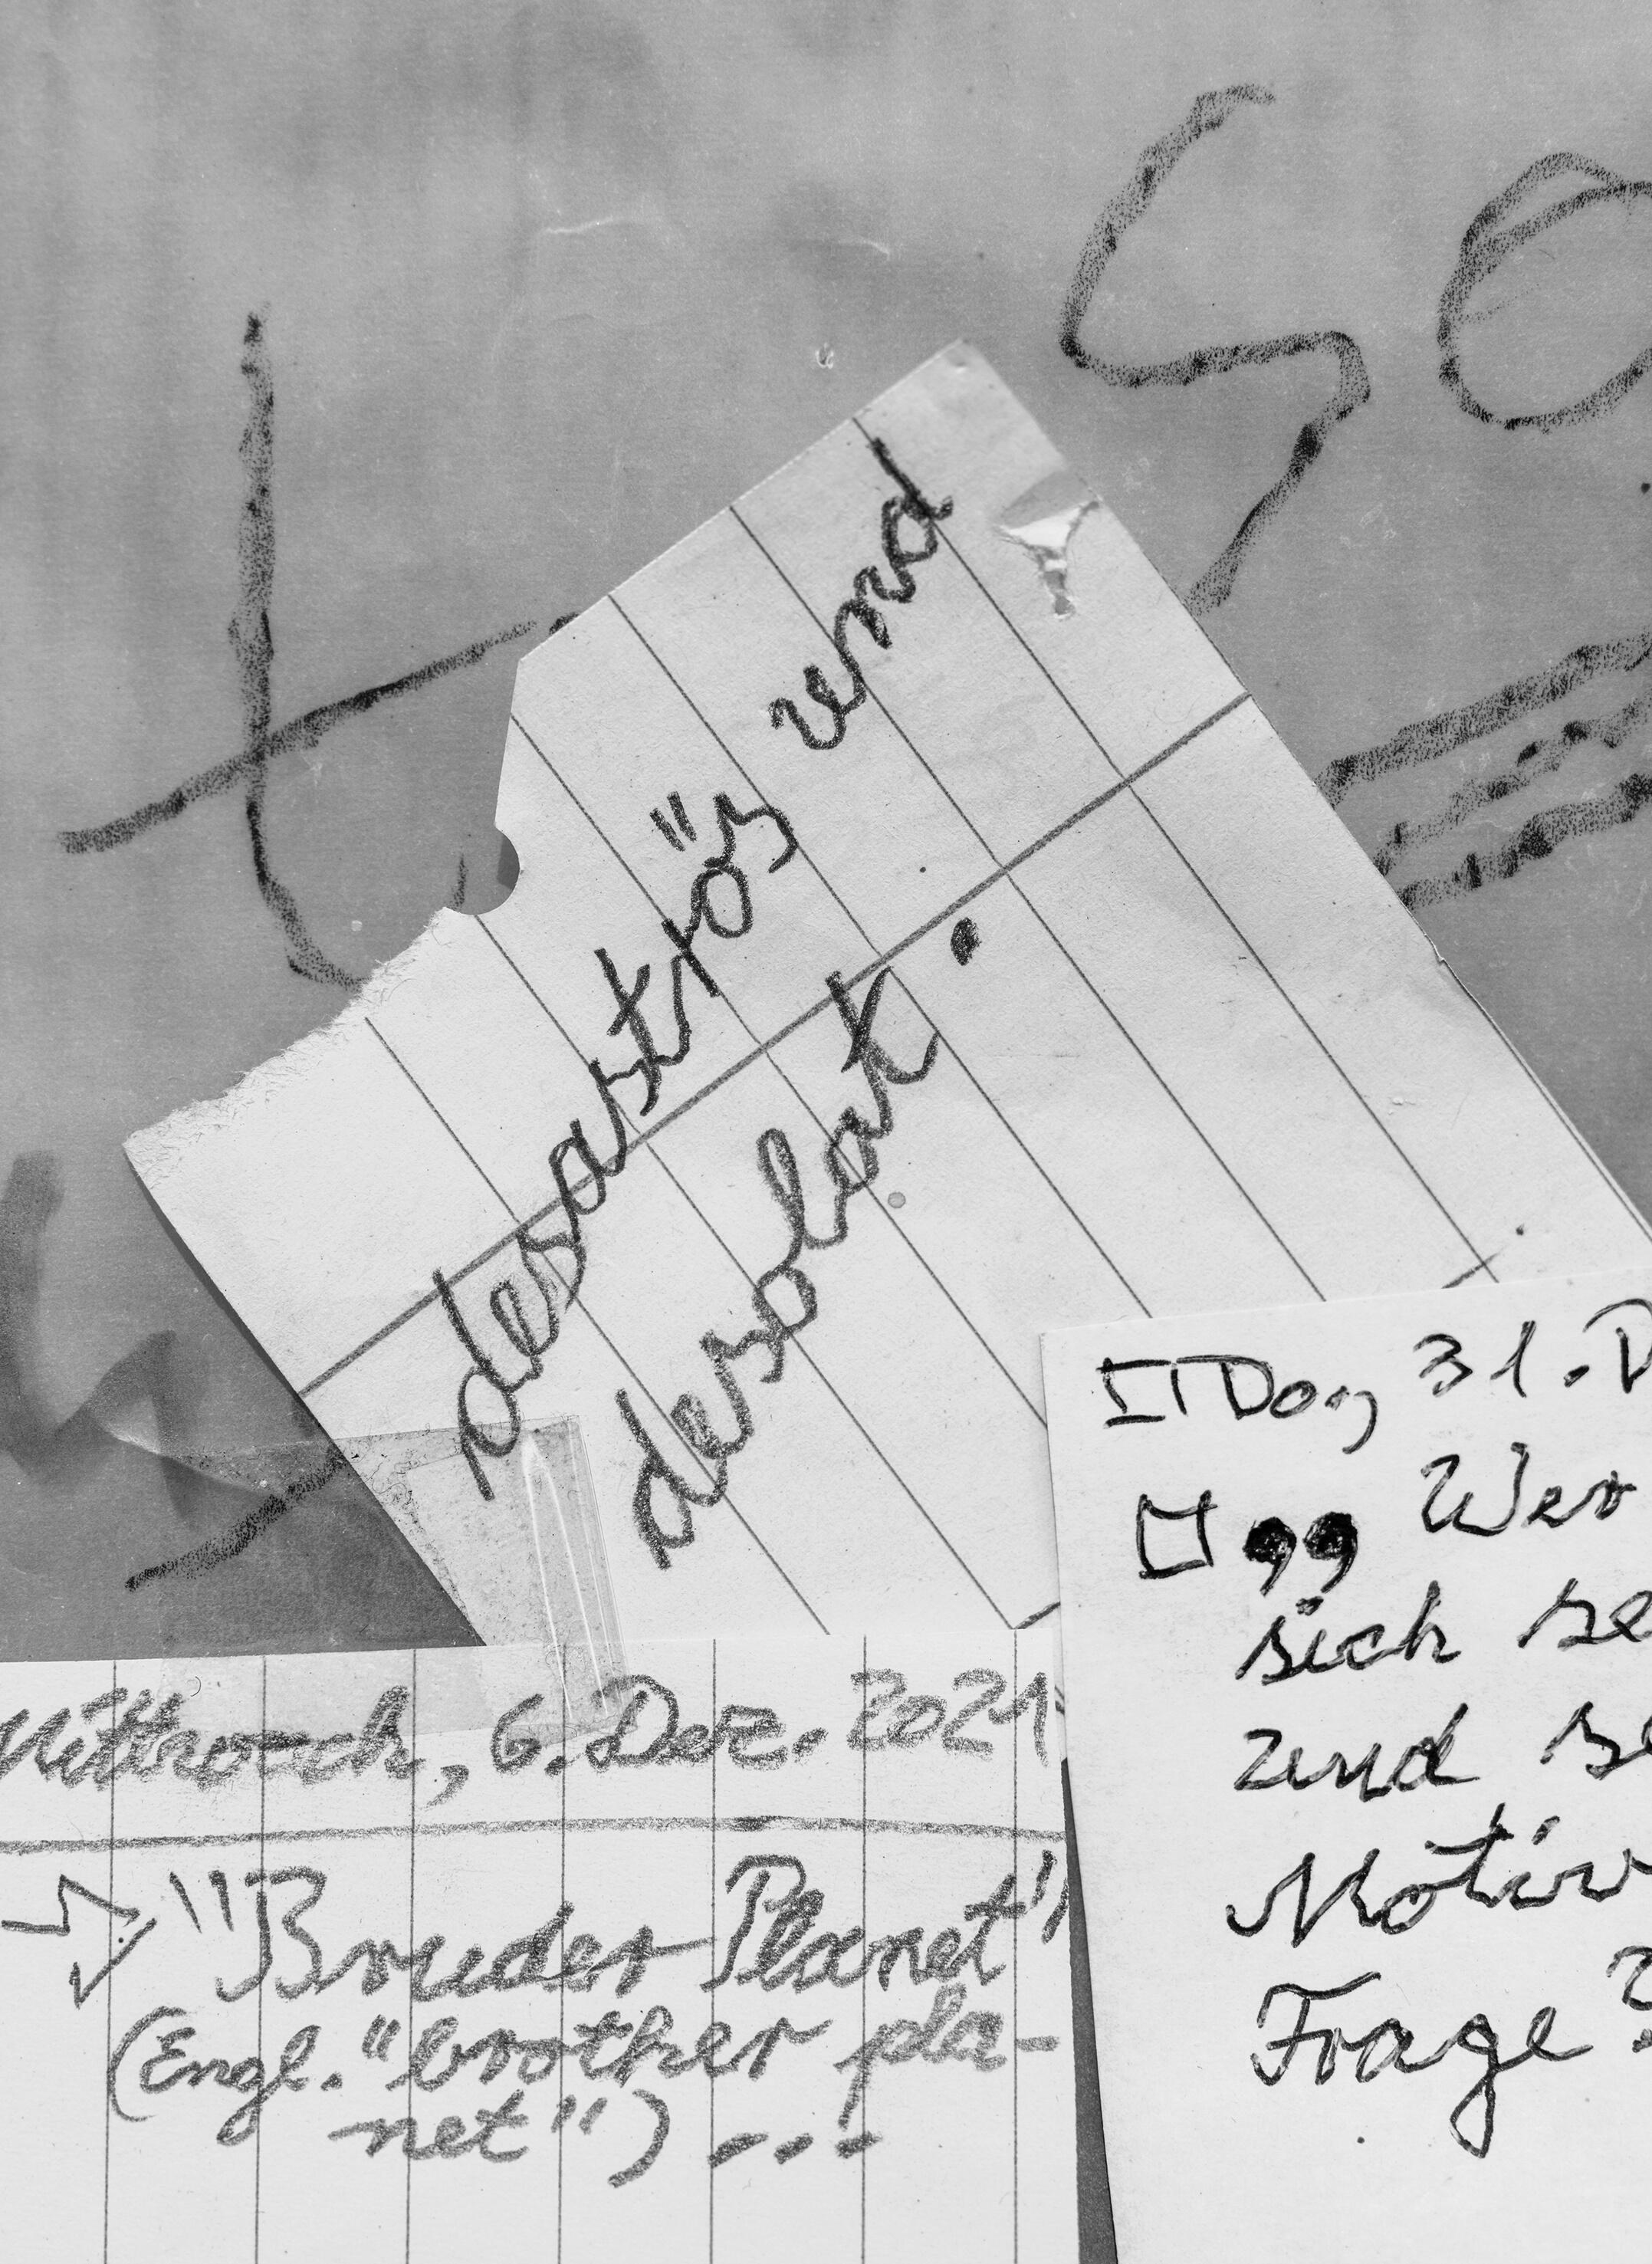 t
so
desaströs und
desolat.
Mittwoch, 6. Dez. 2021
"Bruder Planet"
(Engl. "brother pla-
net") ---
Do, 31. D
Wer
sich se
und se
Motiv
Frage